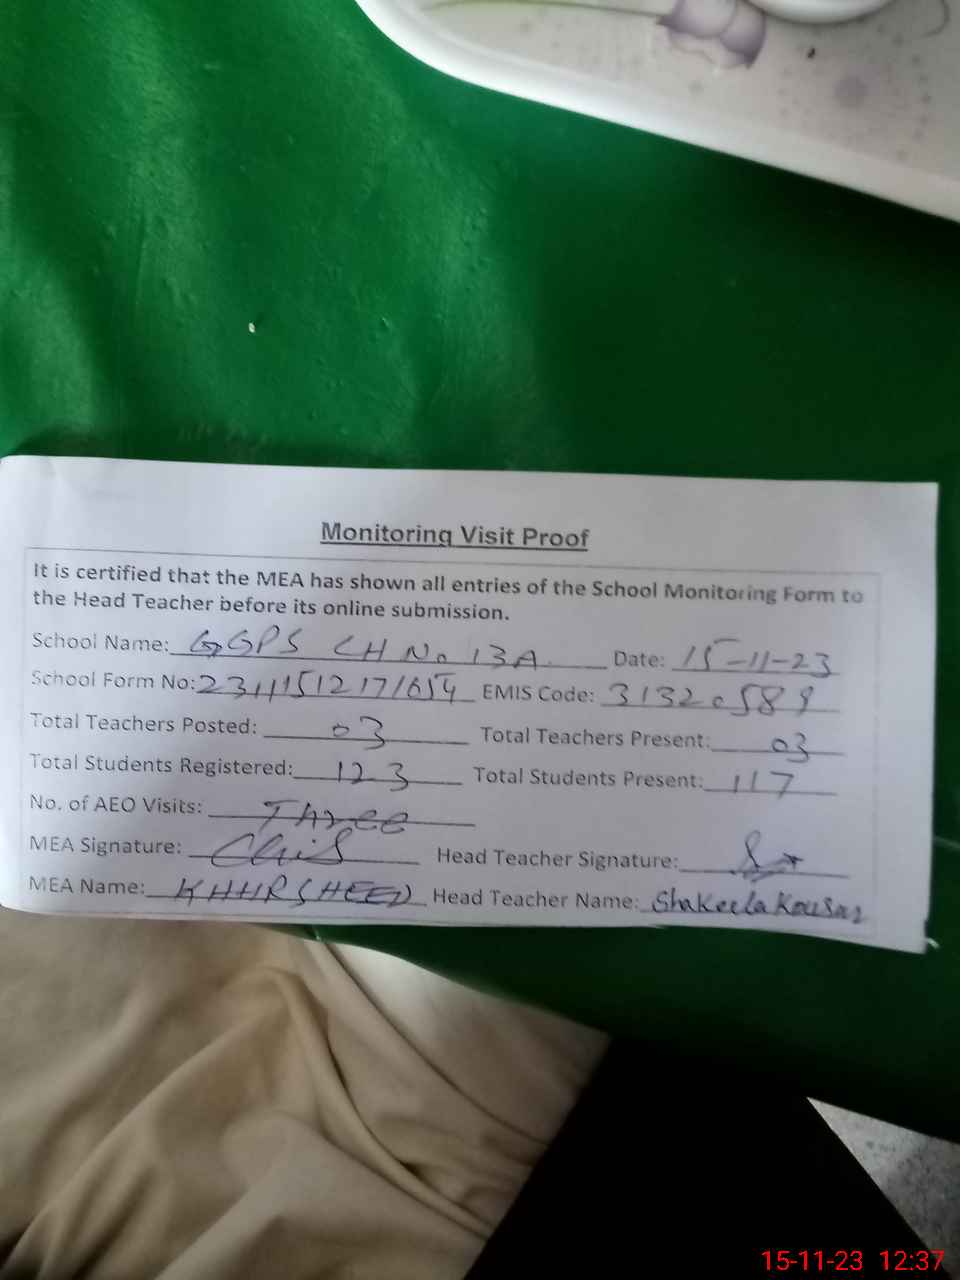 Monitoring Visit Proof
It is certified that the MEA has shown all entries of the School Monitoring Form to
the Head Teacher before its online submission.
School Name: GGPS CH No 13A Date: 15-11-23
School Form No: EMIS Code: 31320589
Total Teachers Posted: 03 Total Teachers Present: 03
Total Students Registered: 123 Total Students Present: 117
No. of AEO Visits: Three
MEA Signature: Head Teacher Signature:
MEA Name: KHHRSHEED Head Teacher Name: Shakeela Kousar
15-11-23 12:37